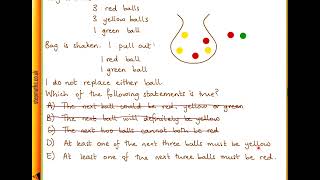 3 red balls
3 yellow balls
1 green ball
Bag is shaken. I pull out:
1 red ball
1 green ball
I do not replace either ball.
Which of the following statements is true?
A) The next ball could be red, yellow or green
B) The next ball will definitely be yellow
C) The next two balls cannot both be red
D) At least one of the next three balls must be yellow
E) At least one of the next three balls must be red.